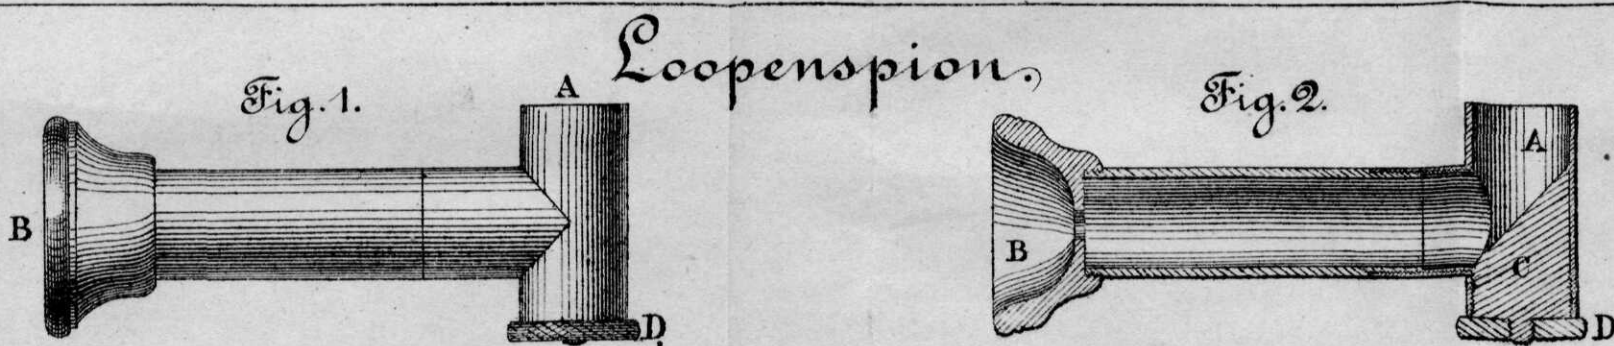 Loopenspion.
Fig. 1.
A
B
D
Fig. 2.
A
B
C
D